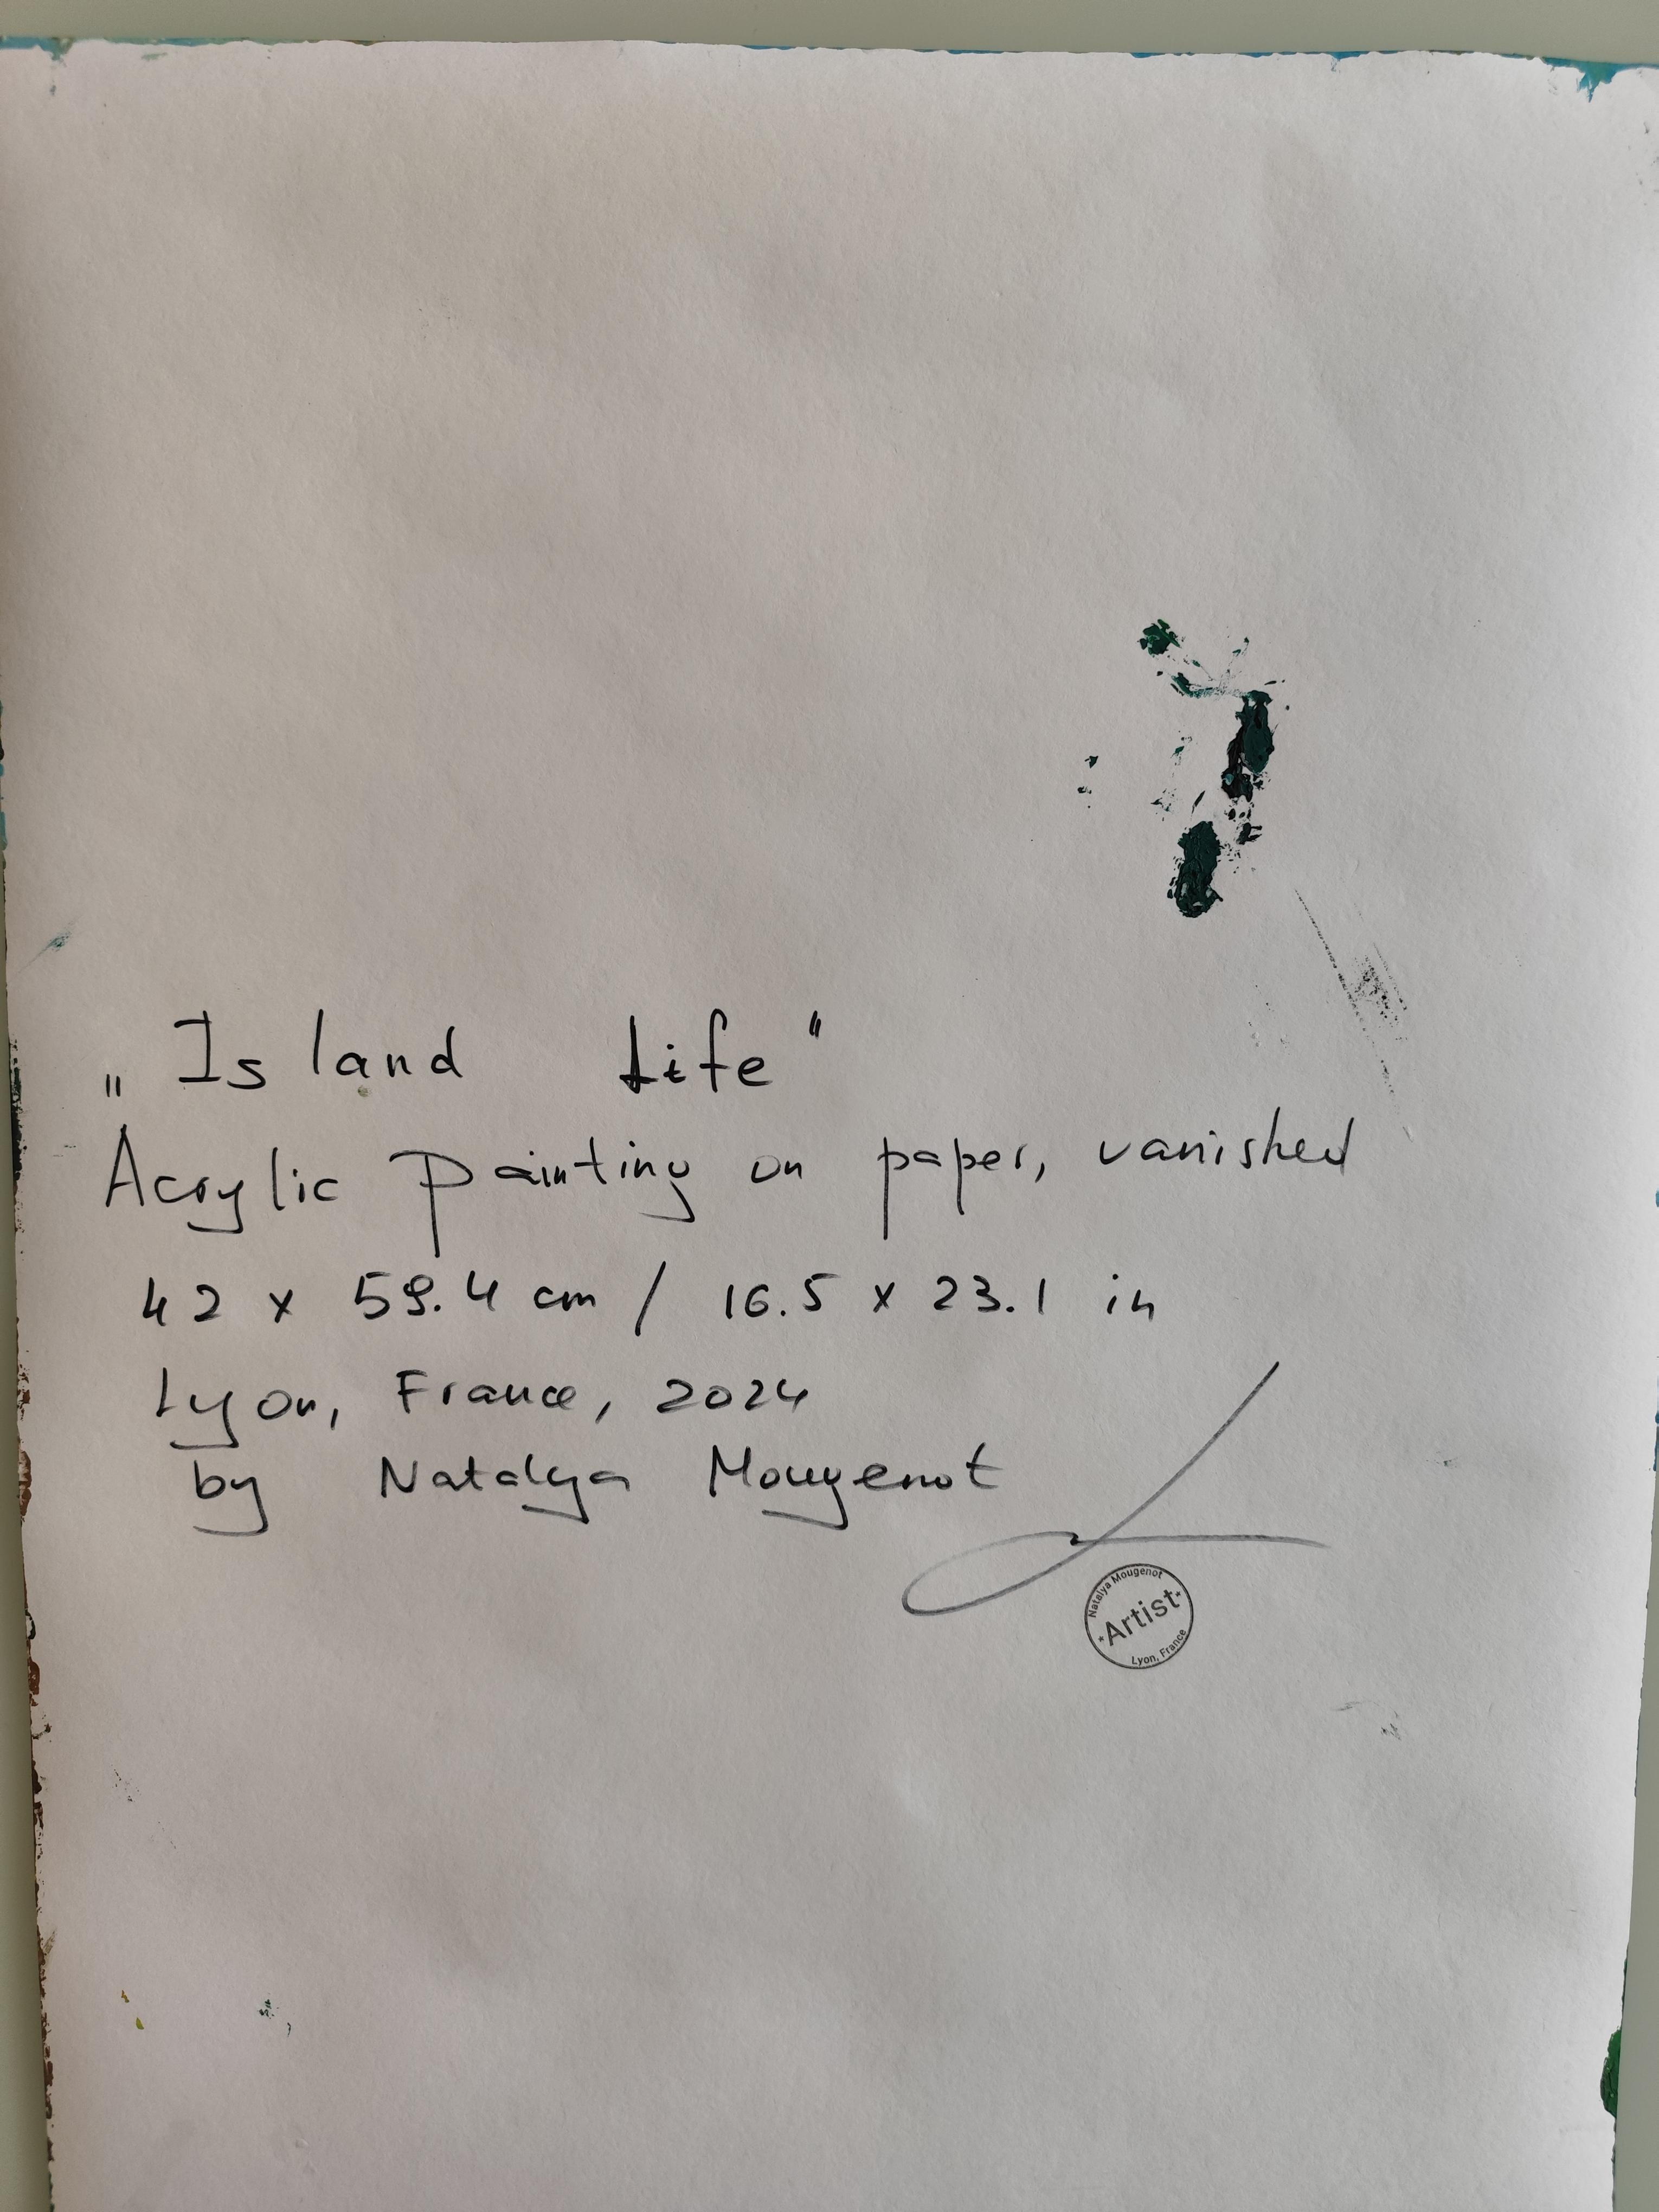 „Island Life"
Acrylic Painting on paper, vanished
42 x 59.4 cm / 16.5 x 23.1 in
Lyon, France, 2024
by Natalya Mougenot
Natalya Mougenot
*Artist*
Lyon, France